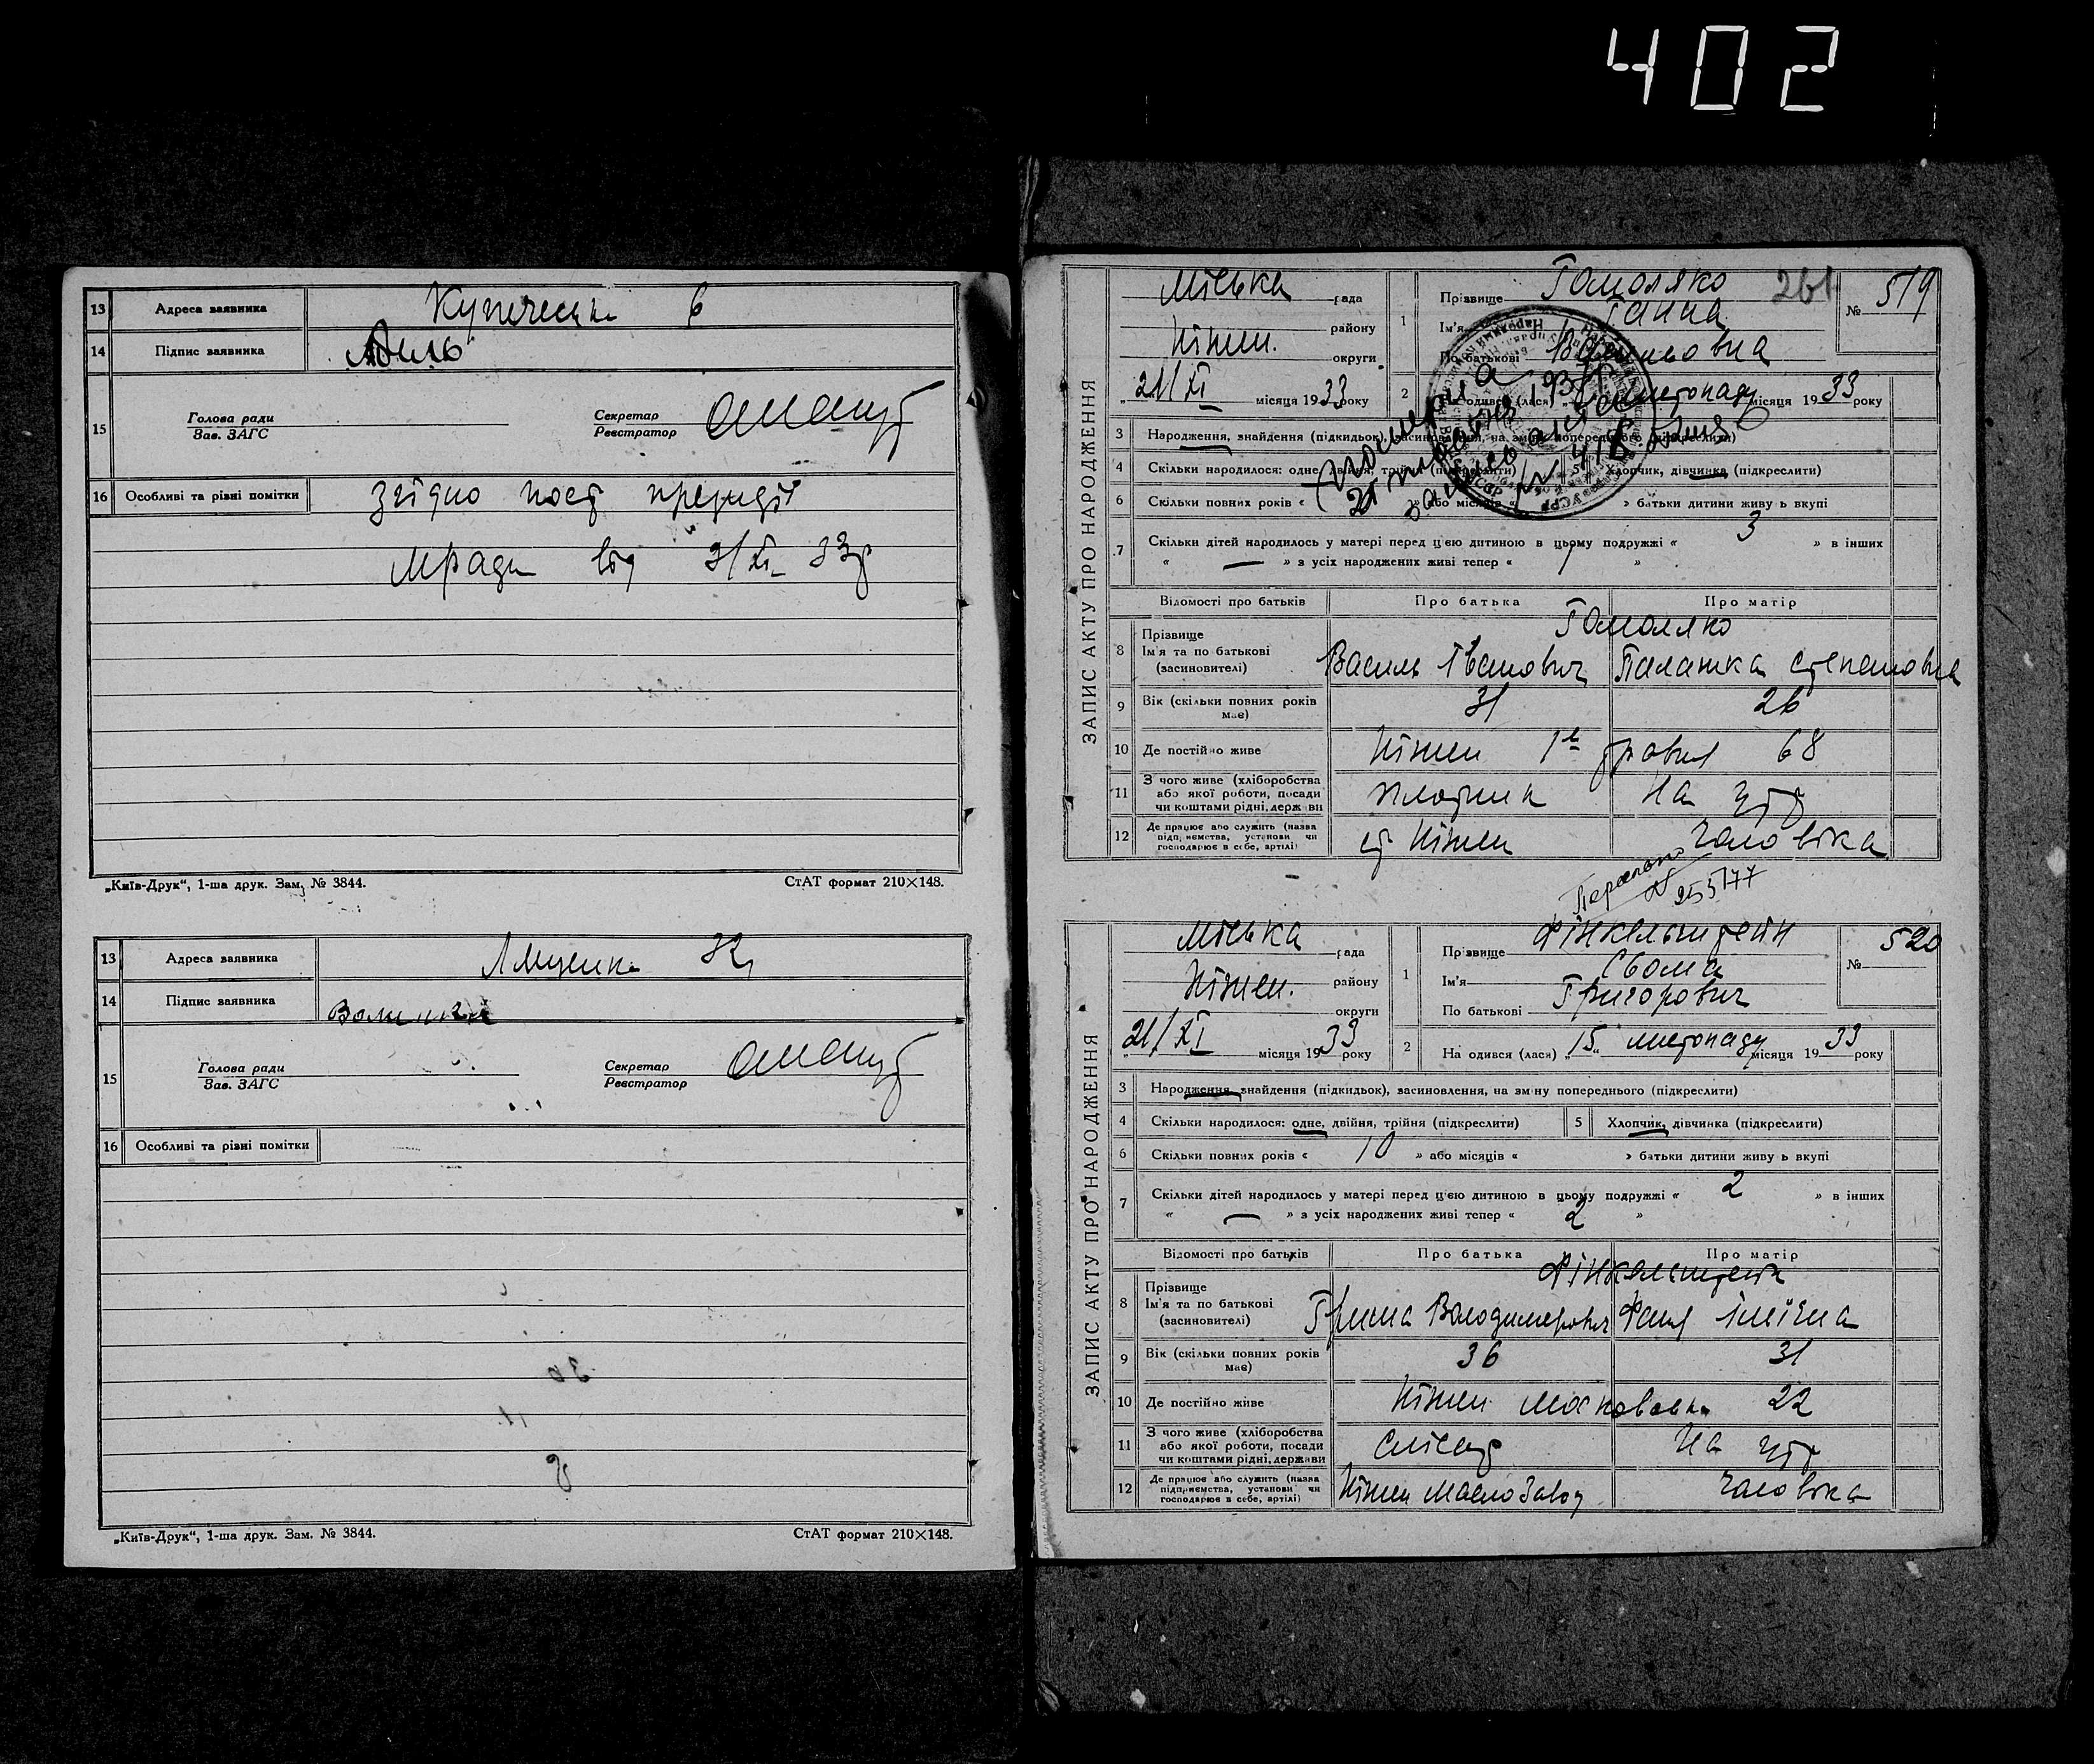 402
13 Адреса заявника Купеческа 6
14 Підпис заявника
15 Голова ради Секретар
Зав. ЗАГС Реєстратор
16 Особливі та різні помітки Згідно пост президії
Мради від 3/XI 33р
„Київ-Друк“, 1-ша друк. Зам. № 3844. СтАТ формат 210×148.
13 Адреса заявника
14 Підпис заявника
15 Голова ради Секретар
Зав. ЗАГС Реєстратор
16 Особливі та різні помітки
„Київ-Друк“, 1-ша друк. Зам. № 3844. СтАТ формат 210×148.
ЗАПИС АКТУ ПРО НАРОДЖЕННЯ
Міська рада
Ніжен. району
округи
21/XI місяця 1933 року
261
№ 519
1 Прізвище Гомоляко
Ім'я Ганна
По батькові Васильовна
2 Народився (лася) листопаду місяця 1933 року
Померла
3 Народження, знайдення (підкидьок), засиновлення, на зміну попереднього (підкреслити)
4 Скільки народилося: одне, двійня, трійня (підкреслити) 5 Хлопчик, дівчинка (підкреслити)
6 Скільки повних років « » або місяців « » батьки дитини живуть вкупі
7 Скільки дітей народилось у матері перед цією дитиною в цьому подружжі « 3 » в інших
« — » з усіх народжених живі тепер « 1 »
Відомості про батьків Про батька Про матір
8 Прізвище Ім'я та по батькові (засиновителі) Гомоляко
Василь Іванович Палажка Степановна
9 Вік (скільки повних років має) 31 26
10 Де постійно живе Ніжен 68
11 З чого живе (хліборобства або якої роботи, посади чи коштами рідні, держави Плотник На утр
12 Де працює або служить (назва підприємства, установи чи господарює в себе, артілі) ст Ніжен чоловіка
ЗАПИС АКТУ ПРО НАРОДЖЕННЯ
Міська рада
Ніжен. району
округи
21/XI місяця 1933 року
№ 520
1 Прізвище Фінкельштейн
Ім'я Сьома
По батькові Григорович
2 Народився (лася) „15“ листопаду місяця 1933 року
3 Народження, знайдення (підкидьок), засиновлення, на зміну попереднього (підкреслити)
4 Скільки народилося: одне, двійня, трійня (підкреслити) 5 Хлопчик, дівчинка (підкреслити)
6 Скільки повних років « 10 » або місяців « » батьки дитини живуть вкупі
7 Скільки дітей народилось у матері перед цією дитиною в цьому подружжі « 2 » в інших
« — » з усіх народжених живі тепер « 2 »
Відомості про батьків Про батька Про матір
8 Прізвище Ім'я та по батькові (засиновителі) Фінкельштейн
Гриша Володимерович Фаня
9 Вік (скільки повних років має) 36 31
10 Де постійно живе Ніжен Московська 22
11 З чого живе (хліборобства або якої роботи, посади чи коштами рідні, держави Слюсар На утр
12 Де працює або служить (назва підприємства, установи чи господарює в себе, артілі) Ніжен Маслозавод чоловіка